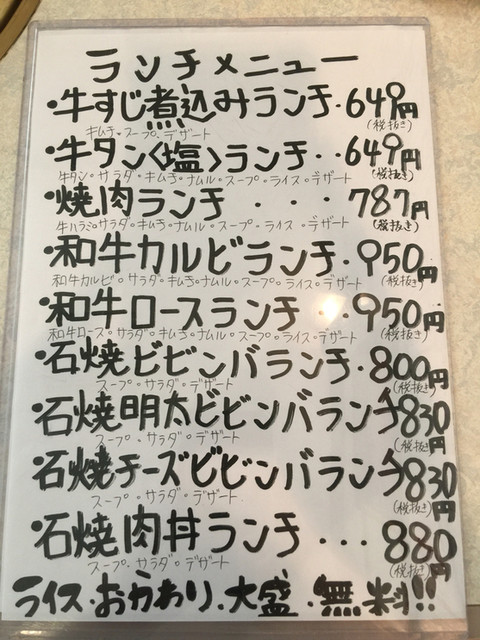 ランチメニュー
・牛すじ煮込みランチ・649円
キムチ・スープ・デザート (税抜き)
・牛タン〈塩〉ランチ・・649円
牛タン・サラダ・キムチ・ナムル・スープ・ライス・デザート (税抜き)
・焼肉ランチ ・・・ 787円
牛ハラミ・サラダ・キムチ・ナムル・スープ・ライス・デザート (税抜き)
・和牛カルビランチ・950円
和牛カルビ・サラダ・キムチ・ナムル・スープ・ライス・デザート (税抜き)
・和牛ロースランチ・・950円
和牛ロース・サラダ・キムチ・ナムル・スープ・ライス・デザート (税抜き)
・石焼ビビンバランチ・800円
スープ・サラダ・デザート (税抜き)
・石焼明太ビビンバランチ830円
スープ・サラダ・デザート (税抜き)
・石焼チーズビビンバランチ830円
スープ・サラダ・デザート (税抜き)
・石焼肉丼ランチ・・・880円
スープ・サラダ・デザート (税抜き)
ライス・おかわり・大盛・無料!!